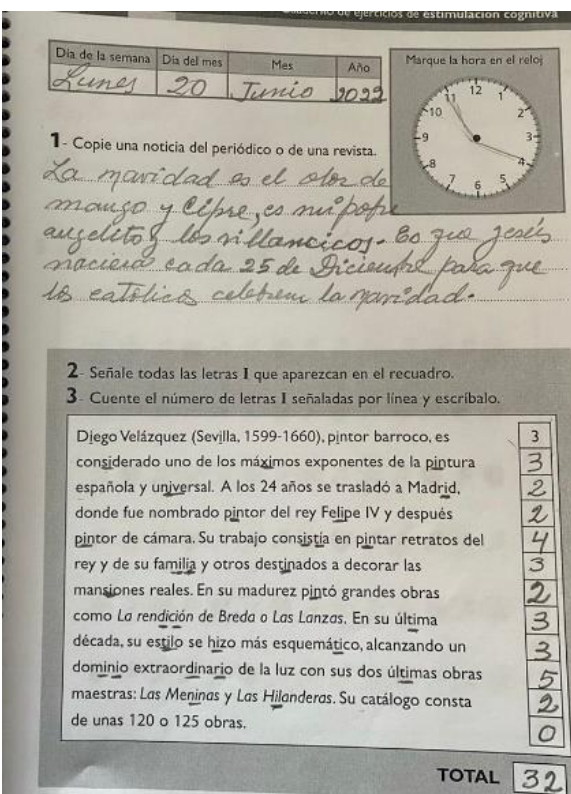 Cuaderno de ejercicios de estimulación cognitiva
Día de la semana Día del mes Mes Año
Lunes 20 Junio 2022
Marque la hora en el reloj
12
11 1
10 2
9 3
8 4
7 5
6
1- Copie una noticia del periódico o de una revista.
La navidad es el olor de
y es
angelitos y los villancicos. Es que Jesús
naciera cada 25 de Diciembre para que
los católicos celebren la navidad.
2- Señale todas las letras I que aparezcan en el recuadro.
3- Cuente el número de letras I señaladas por línea y escríbalo.
Diego Velázquez (Sevilla, 1599-1660), pintor barroco, es 3
considerado uno de los máximos exponentes de la pintura 3
española y universal. A los 24 años se trasladó a Madrid, 2
donde fue nombrado pintor del rey Felipe IV y después 2
pintor de cámara. Su trabajo consistía en pintar retratos del 4
rey y de su familia y otros destinados a decorar las 3
mansiones reales. En su madurez pintó grandes obras 2
como La rendición de Breda o Las Lanzas. En su última 3
década, su estilo se hizo más esquemático, alcanzando un 3
dominio extraordinario de la luz con sus dos últimas obras 5
maestras: Las Meninas y Las Hilanderas. Su catálogo consta 2
de unas 120 o 125 obras. 0
TOTAL 32